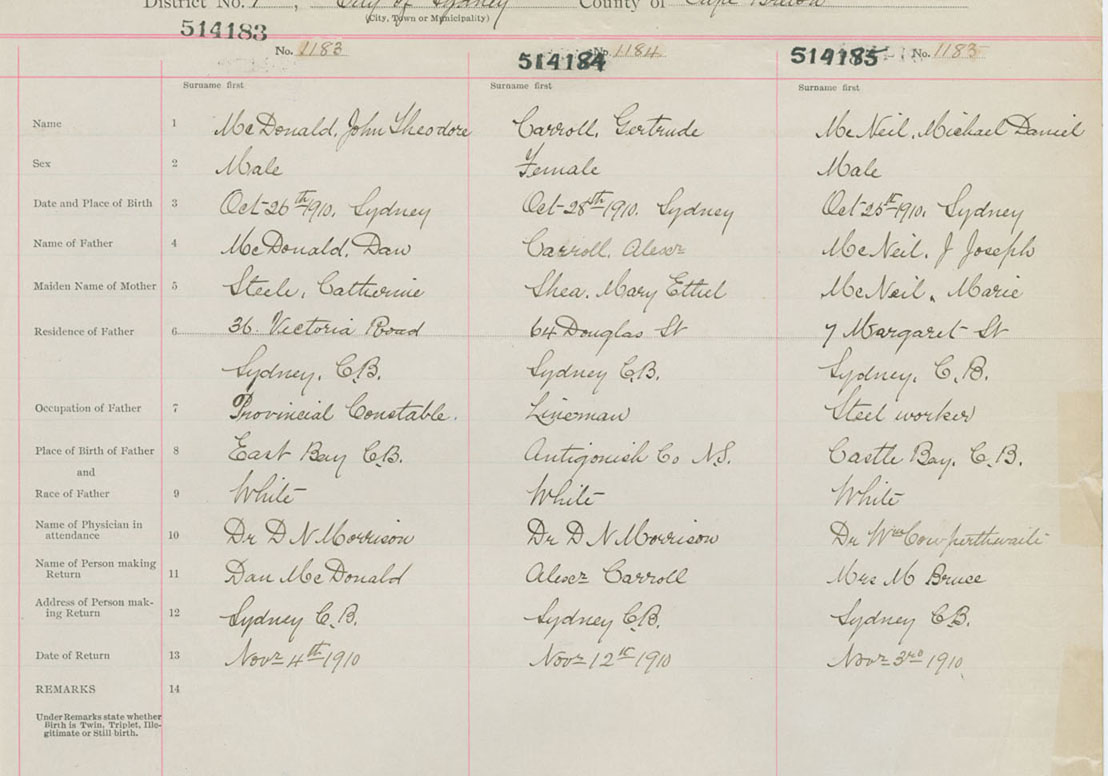 District No. 7, City of Sydney County of Cape Breton
(City, Town or Municipality)
514183 514184 514185
No. 1183 No. 1184 No. 1183
Surname first Surname first Surname first
Name 1 McDonald, John Theodore Carroll, Gertrude McNeil, Michael Daniel
Sex 2 Male Female Male
Date and Place of Birth 3 Oct 26th 1910, Sydney Oct 28th 1910. Sydney Oct 25th 1910, Sydney
Name of Father 4 McDonald, Dan Carroll, Alexr McNeil, J Joseph
Maiden Name of Mother 5 Steele, Catherine Shea, Mary Ethel McNeil, Marie
Residence of Father 6 36 Victoria Road 64 Douglas St 7 Margaret St
Sydney, C.B. Sydney C.B. Sydney, C.B.
Occupation of Father 7 Provincial Constable. Lineman Steel worker
Place of Birth of Father 8 East Bay C.B. Antigonish Co N.S. Castle Bay, C.B.
and
Race of Father 9 White White White
Name of Physician in
attendance 10 Dr D N Morrison Dr D N Morrison Dr Wm Cowperthwaite
Name of Person making
Return 11 Dan McDonald Alexr Carroll Mrs M Bruce
Address of Person mak-
ing Return 12 Sydney C.B. Sydney C.B. Sydney C.B.
Date of Return 13 Novr 4th 1910 Novr 12th 1910 Novr 3rd 1910
REMARKS 14
Under Remarks state whether
Birth is Twin, Triplet, Ille-
gitimate or Still birth.